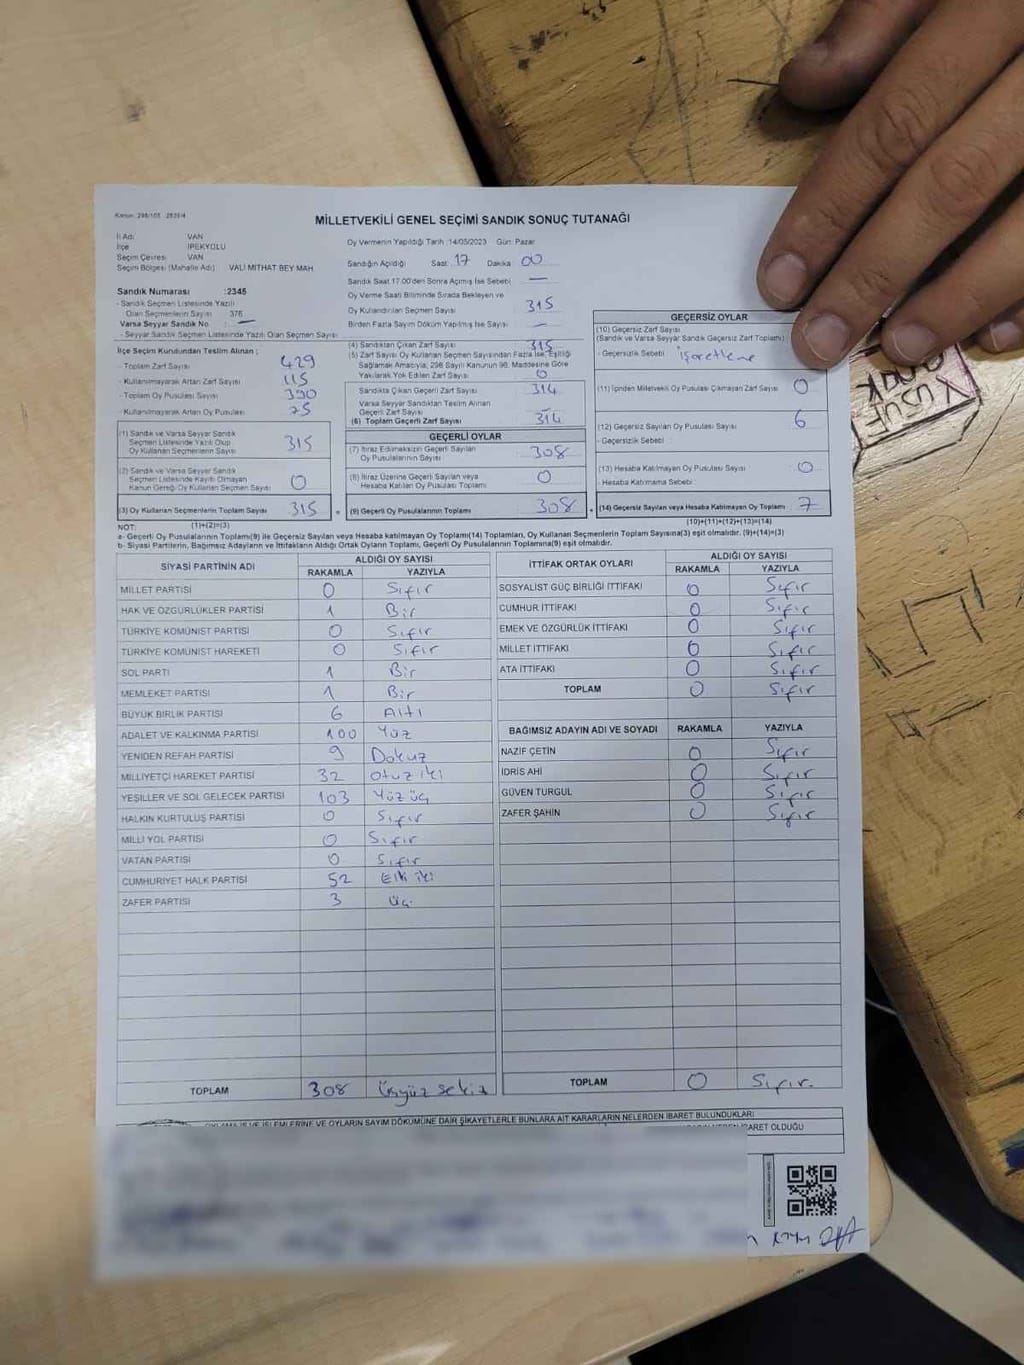 Kanun: 298/105 - 2839/4
MİLLETVEKİLİ GENEL SEÇİMİ SANDIK SONUÇ TUTANAĞI
İl Adı: VAN
İlçe İPEKYOLU
Seçim Çevresi: VAN
Seçim Bölgesi (Mahalle Adı) VALİ MİTHAT BEY MAH.
Oy Vermenin Yapıldığı Tarih :14/05/2023 Gün: Pazar
Sandığın Açıldığı Saat: 17 Dakika: 00
Sandık Saat 17.00'den Sonra Açılmış İse Sebebi: —
Oy Verme Saati Bitiminde Sırada Bekleyen ve
Oy Kullandırılan Seçmen Sayısı 315
Birden Fazla Sayım Döküm Yapılmış İse Sayısı —
Sandık Numarası :2345
- Sandık Seçmen Listesinde Yazılı
Olan Seçmenlerin Sayısı 376
Varsa Seyyar Sandık No : —
- Seyyar Sandık Seçmen Listesinde Yazılı Olan Seçmen Sayısı
İlçe Seçim Kurulundan Teslim Alınan ;
- Toplam Zarf Sayısı 429
- Kullanılmayarak Artan Zarf Sayısı 115
- Toplam Oy Pusulası Sayısı 390
- Kullanılmayarak Artan Oy Pusulası 75
(1) Sandık ve Varsa Seyyar Sandık
Seçmen Listesinde Yazılı Olup
Oy Kullanan Seçmenlerin Sayısı 315
(2) Sandık ve Varsa Seyyar Sandık
Seçmen Listesinde Kayıtlı Olmayan
Kanun Gereği Oy Kullanan Seçmen Sayısı 0
(3) Oy Kullanan Seçmenlerin Toplam Sayısı 315
(4) Sandıktan Çıkan Zarf Sayısı 315
(5) Zarf Sayısı Oy Kullanan Seçmen Sayısından Fazla İse, Eşitliği
Sağlamak Amacıyla, 298 Sayılı Kanunun 98. Maddesine Göre
Yakılarak Yok Edilen Zarf Sayısı 0
Sandıkta Çıkan Geçerli Zarf Sayısı 314
Varsa Seyyar Sandıktan Teslim Alınan
Geçerli Zarf Sayısı —
(6) Toplam Geçerli Zarf Sayısı 314
GEÇERLİ OYLAR
(7) İtiraz Edilmeksizin Geçerli Sayılan
Oy Pusulalarının Sayısı 308
(8) İtiraz Üzerine Geçerli Sayılan veya
Hesaba Katılan Oy Pusulası Toplamı 0
(9) Geçerli Oy Pusulalarının Toplamı 308
GEÇERSİZ OYLAR
(10) Geçersiz Zarf Sayısı
(Sandık ve Varsa Seyyar Sandık Geçersiz Zarf Toplamı)
- Geçersizlik Sebebi : işaretleme
(11) İçinden Milletvekili Oy Pusulası Çıkmayan Zarf Sayısı 0
(12) Geçersiz Sayılan Oy Pusulası Sayısı 6
- Geçersizlik Sebebi :
(13) Hesaba Katılmayan Oy Pusulası Sayısı 0
- Hesaba Katılmama Sebebi :
(14) Geçersiz Sayılan veya Hesaba Katılmayan Oy Toplamı 7
NOT: (1)+(2)=(3) (10)+(11)+(12)+(13)=(14)
a- Geçerli Oy Pusulalarının Toplamı(9) ile Geçersiz Sayılan veya Hesaba katılmayan Oy Toplamı(14) Toplamları, Oy Kullanan Seçmenlerin Toplam Sayısına(3) eşit olmalıdır. (9)+(14)=(3)
b- Siyasi Partilerin, Bağımsız Adayların ve İttifakların Aldığı Ortak Oyların Toplamı, Geçerli Oy Pusulalarının Toplamına(9) eşit olmalıdır.
SİYASİ PARTİNİN ADI ALDIĞI OY SAYISI
RAKAMLA YAZIYLA
MİLLET PARTİSİ 0 Sıfır
HAK VE ÖZGÜRLÜKLER PARTİSİ 1 Bir
TÜRKİYE KOMÜNİST PARTİSİ 0 Sıfır
TÜRKİYE KOMÜNİST HAREKETİ 0 Sıfır
SOL PARTİ 1 Bir
MEMLEKET PARTİSİ 1 Bir
BÜYÜK BİRLİK PARTİSİ 6 Altı
ADALET VE KALKINMA PARTİSİ 100 Yüz
YENİDEN REFAH PARTİSİ 9 Dokuz
MİLLİYETÇİ HAREKET PARTİSİ 32 Otuz iki
YEŞİLLER VE SOL GELECEK PARTİSİ 103 Yüz üç
HALKIN KURTULUŞ PARTİSİ 0 Sıfır
MİLLİ YOL PARTİSİ 0 Sıfır
VATAN PARTİSİ 0 Sıfır
CUMHURİYET HALK PARTİSİ 52 Elli iki
ZAFER PARTİSİ 3 üç.
TOPLAM 308 Üçyüz sekiz
İTTİFAK ORTAK OYLARI ALDIĞI OY SAYISI
RAKAMLA YAZIYLA
SOSYALİST GÜÇ BİRLİĞİ İTTİFAKI 0 Sıfır
CUMHUR İTTİFAKI 0 Sıfır
EMEK VE ÖZGÜRLÜK İTTİFAKI 0 Sıfır
MİLLET İTTİFAKI 0 Sıfır
ATA İTTİFAKI 0 Sıfır
TOPLAM 0 Sıfır
BAĞIMSIZ ADAYIN ADI VE SOYADI RAKAMLA YAZIYLA
NAZİF ÇETİN 0 Sıfır
İDRİS AHİ 0 Sıfır
GÜVEN TURGUL 0 Sıfır
ZAFER ŞAHİN 0 Sıfır
TOPLAM 0 Sıfır.
OYLAMA İŞ VE İŞLEMLERİNE VE OYLARIN SAYIM DÖKÜMÜNE DAİR ŞİKAYETLERLE BUNLARA AİT KARARLARIN NELERDEN İBARET BULUNDUKLARI
İBARET OLDUĞU
YUSUF